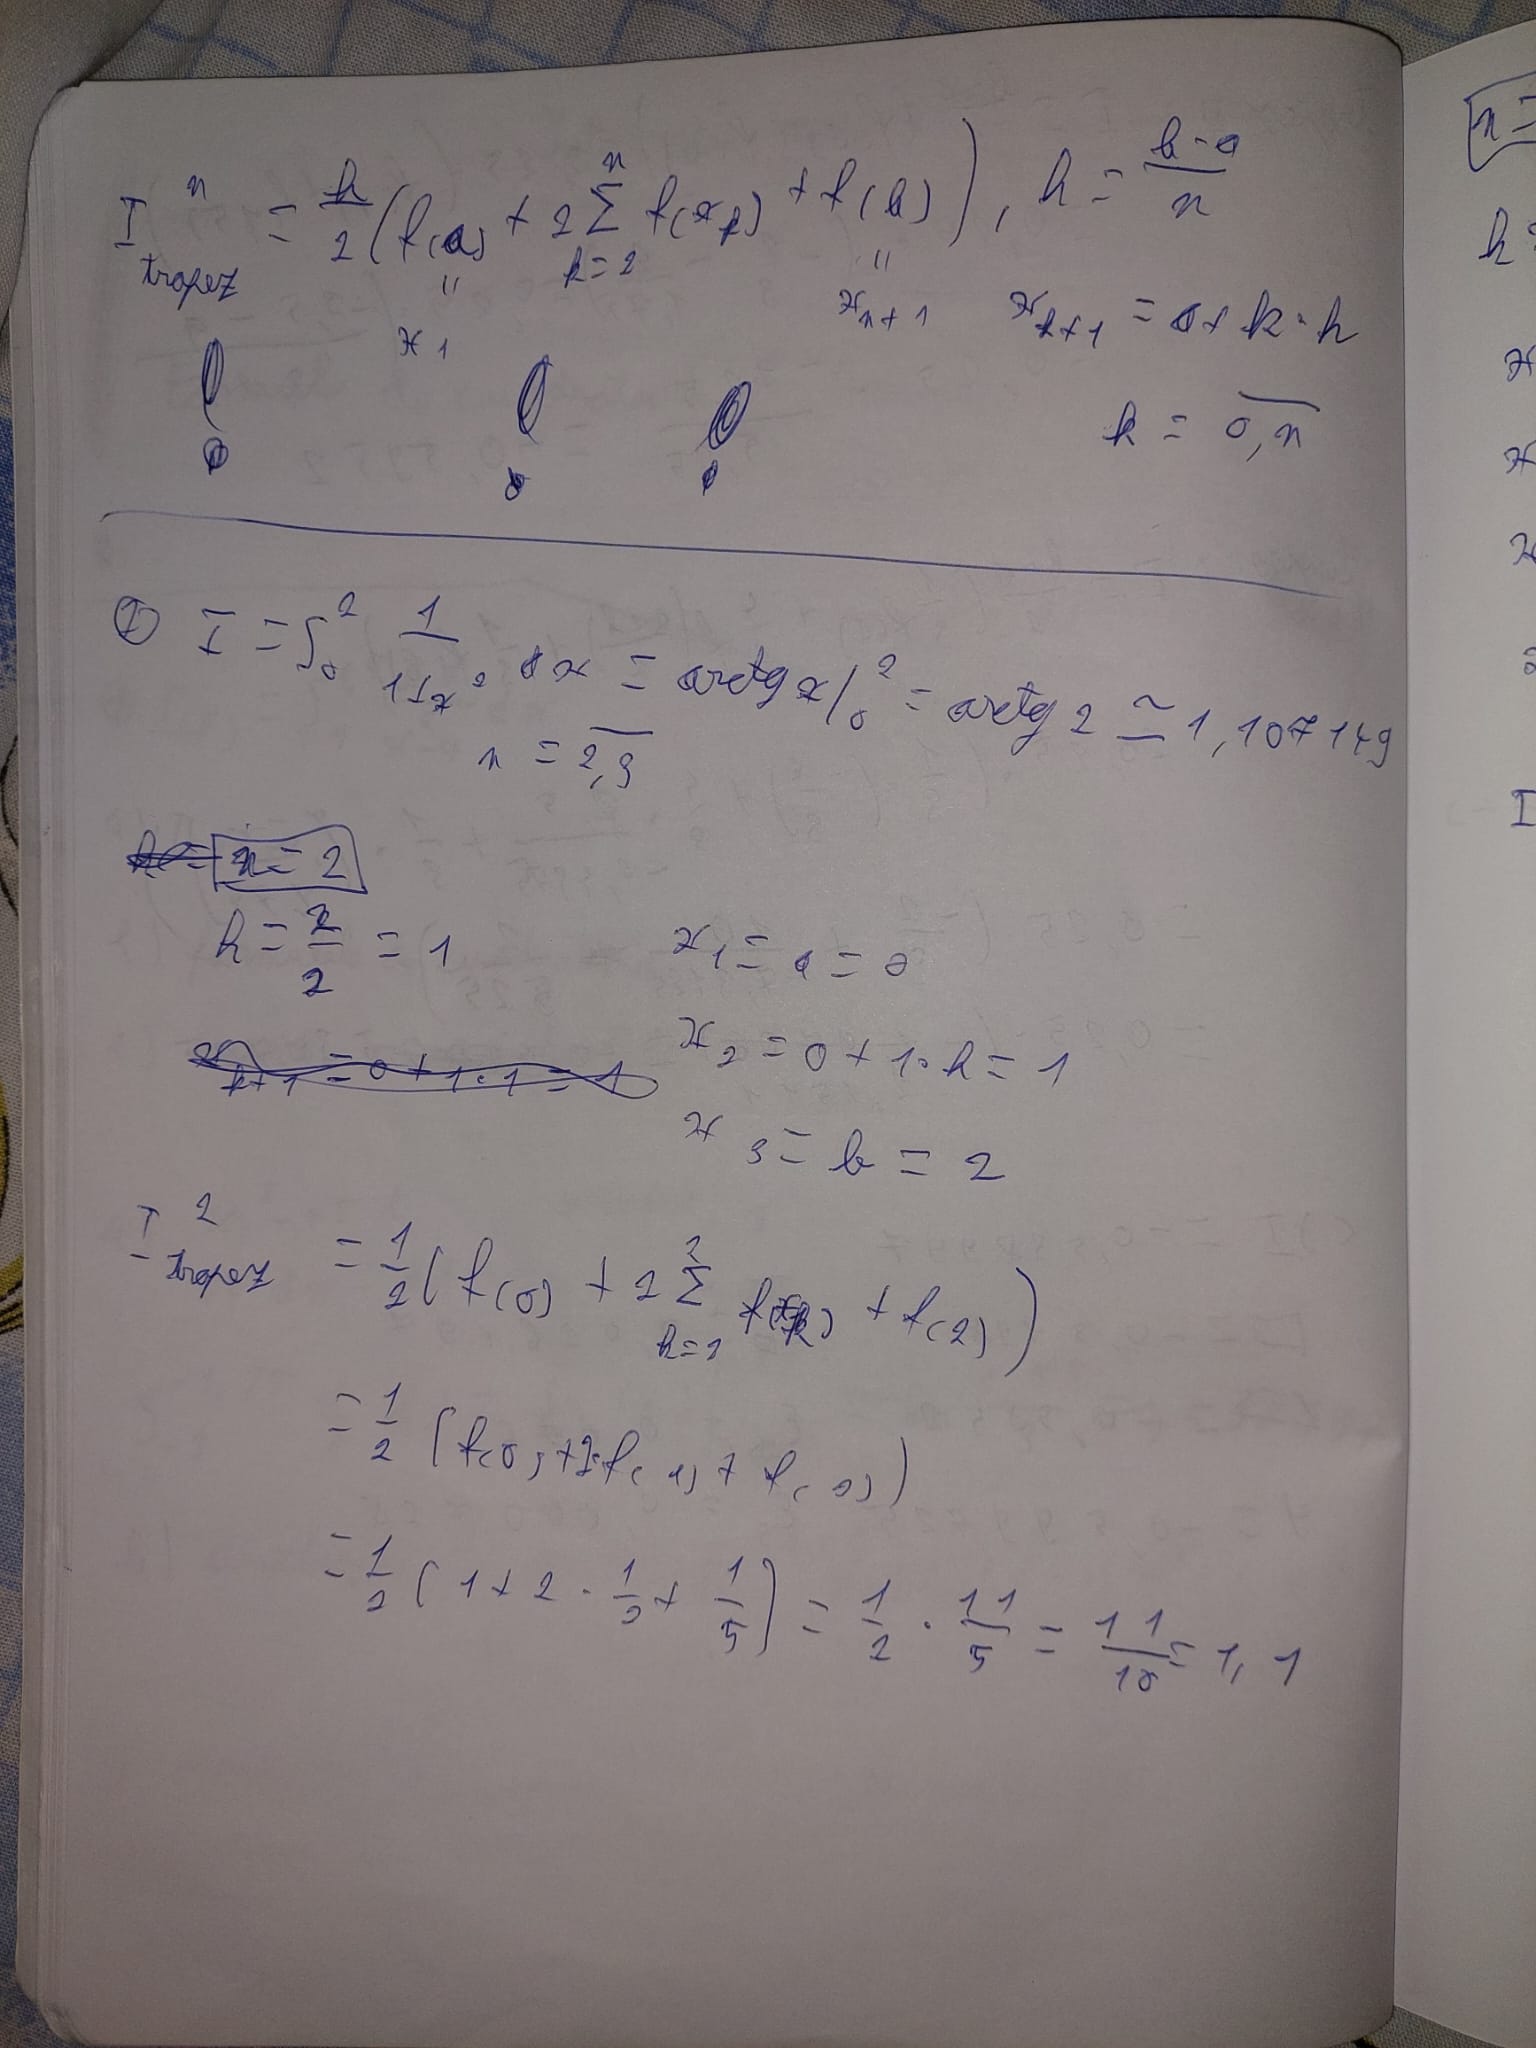 I^n_trapez = h/2 (f(a) + 2 Σ_{k=2}^{n} f(x_k) + f(b)), h = (b-a)/n
" " x_{k+1} = a + k·h
x_1 x_{n+1}
k = \overline{0,n}
① I = ∫_0^2 1/(1+x²) dx = arctg x|_0^2 = arctg 2 ≃ 1,107149
n = \overline{2,3}
n = 2
h = 2/2 = 1 x_1 = a = 0
x_{k+1} = 0 + 1·1 = 1 x_2 = 0 + 1·h = 1
x_3 = b = 2
I^2_trapez = 1/2 (f(0) + 2 Σ_{k=2}^{2} f(x_k) + f(2))
= 1/2 (f(0) + 2·f(1) + f(2))
= 1/2 (1 + 2 · 1/2 + 1/5) = 1/2 · 11/5 = 11/10 = 1,1
n =
h =
x
x
x
I